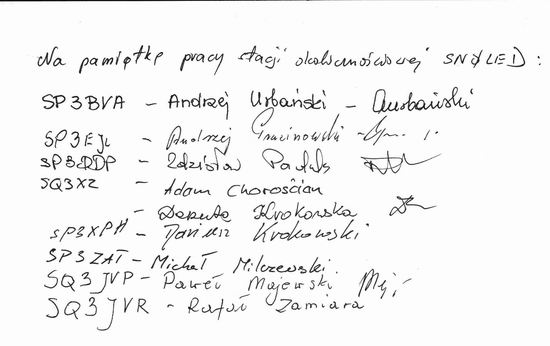 Na pamiątkę pracy stacji okolicznościowej SNØLED:
SP3BVA - Andrzej Urbański - AUrbański
SP3EJL - Andrzej
SP3CRDP - Zdzisław
SQ3XZ - Adam Chorościan
- Danuta Krokowska
SP3XPH - Dariusz Krokowski
SP3ZAT - Michał Milczewski.
SQ3JVP - Paweł Majewski
SQ3JVR - Rafał Zamiara